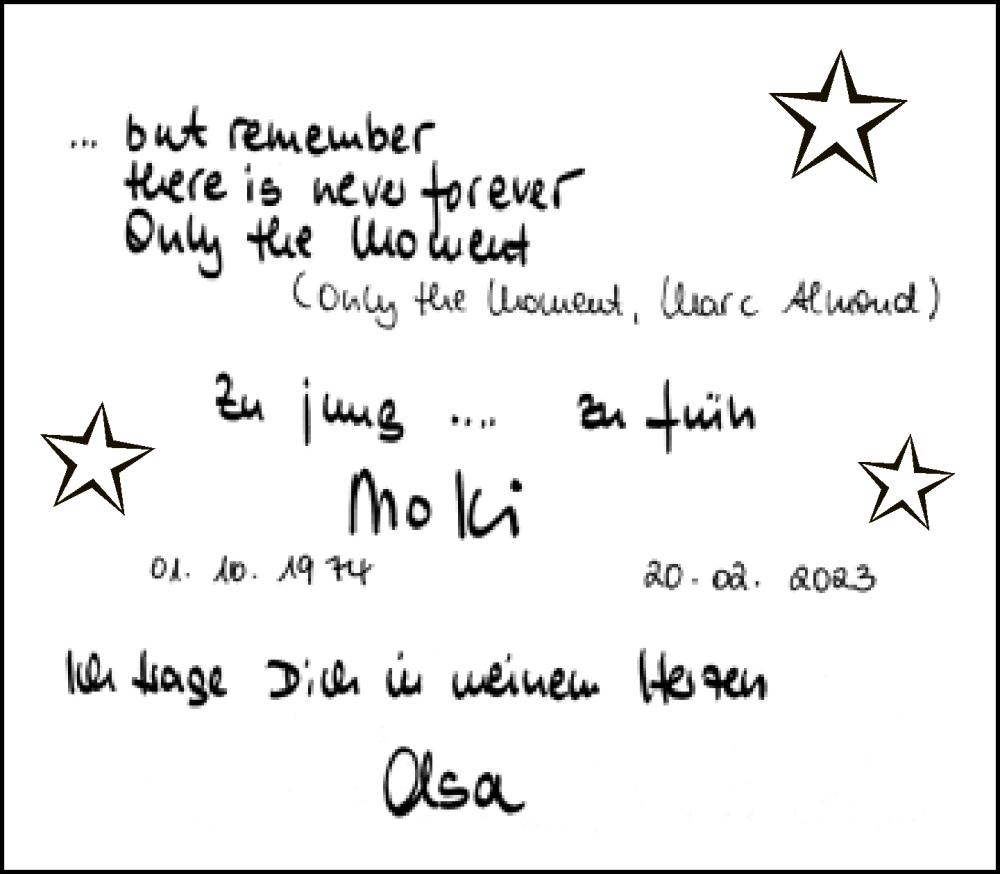 ... but remember
there is never forever
Only the Moment
(Only the Moment, Marc Almond)
Zu jung .... zu früh
Moki
01. 10. 1974 20. 02. 2023
Ich trage Dich in meinem Herzen
Olsa